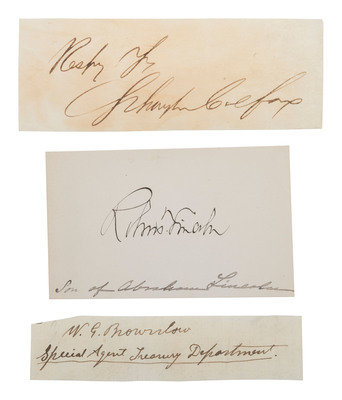 Respy Yr
Schuyler Colfax
Robt T Lincoln
Son of Abraham Lincoln
W. G. Brownlow
Special Agent Treasury Department.